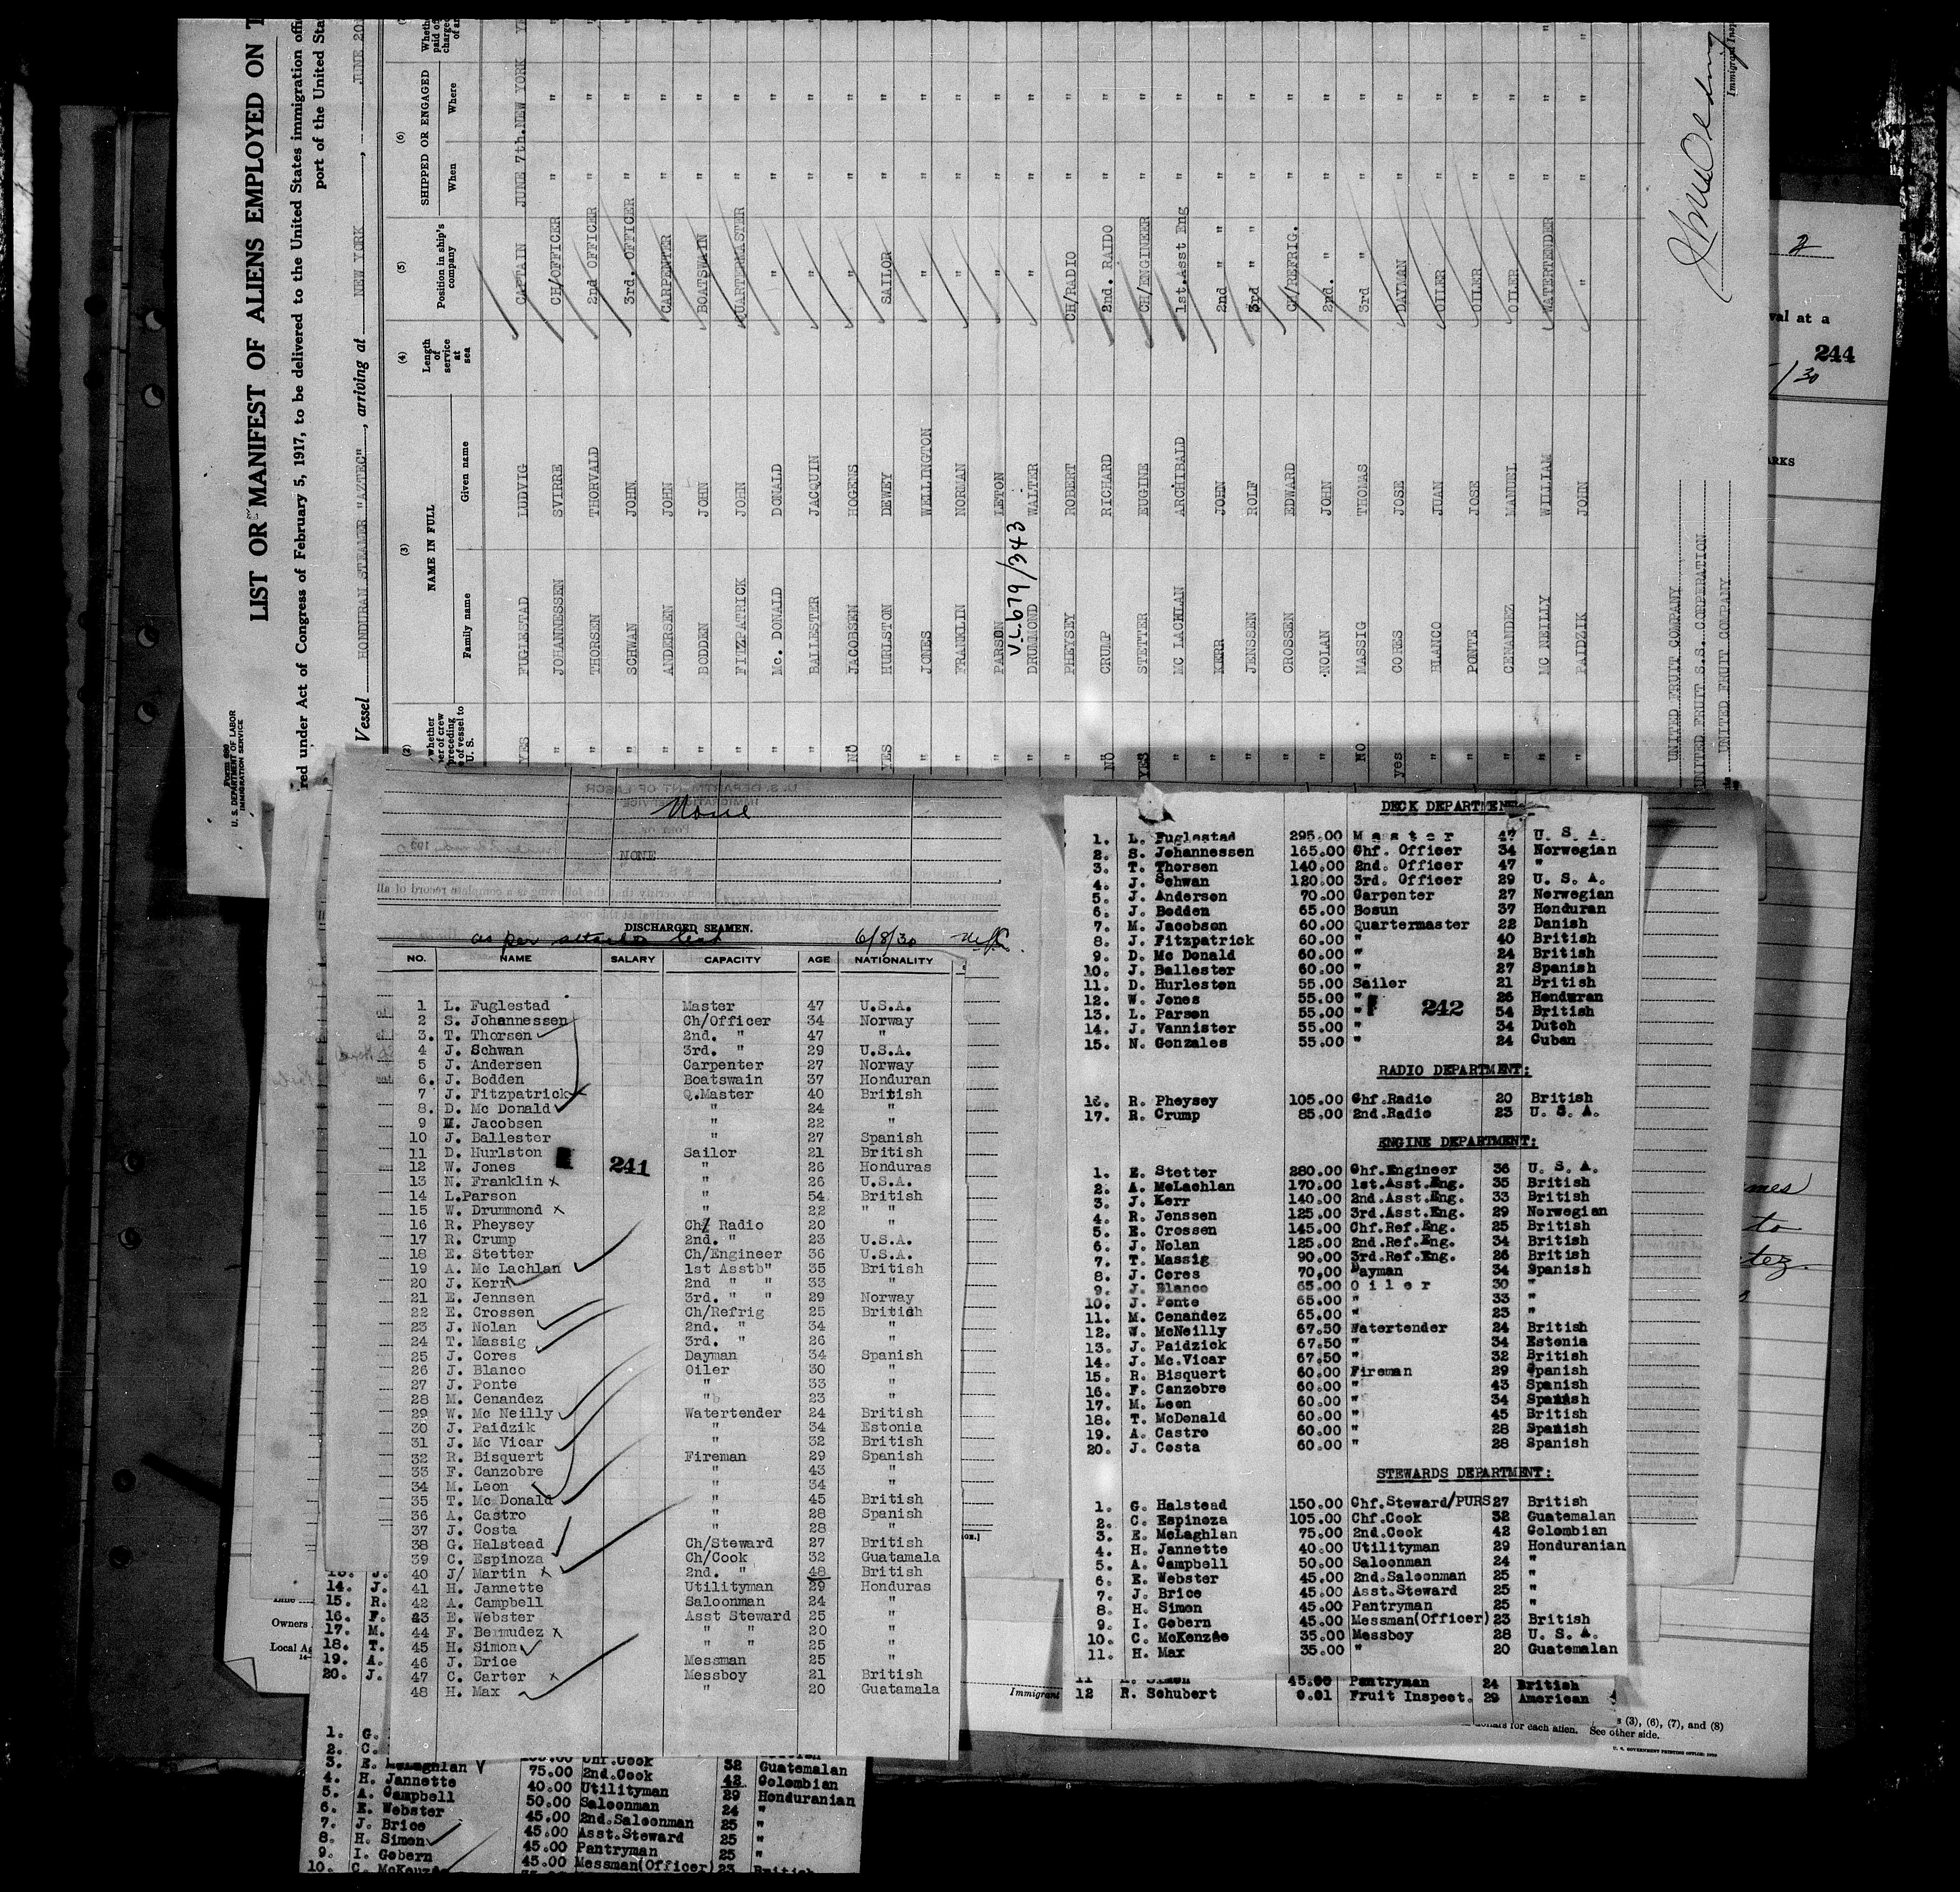 LIST OR MANIFEST OF ALIENS EMPLOYED ON T
red under Act of Congress of February 5, 1917, to be delivered to the United States immigration offi
port of the United Sta
Form 680
U. S. DEPARTMENT OF LABOR
IMMIGRATION SERVICE
Vessel HONDURAN STEAMER "AZTEC", arriving at NEW YORK, JUNE 20
(2) (3) (4) (5) (6)
NAME IN FULL
SHIPPED OR ENGAGED
Family name Given name Length of service at sea Position in ship's company When Where
YES FUGLESTAD LUDVIG CAPTAIN JUNE 7th. NEW YORK YE
" JOHANNESSEN SVIRRE CH/OFFICER " "
" THORSEN THORVALD 2nd OFFICER " "
" SCHWAN JOHN 3rd. OFFICER " "
" ANDERSEN JOHN CARPENTER " "
" BODDEN JOHN BOATSWAIN " "
" FITZPATRICK JOHN QUARTERMASTER " "
" Mc. DONALD DONALD " " "
" BALLESTER JACQUIN " " "
NO JACOBSEN HOGENS " " "
YES HURLSTON DEWEY SAILOR " "
" JONES WELLINGTON " " "
" FRANKLIN NORMAN " " "
" PARSON LETON " " "
V.L. 679/343
" DRUMMOND WALTER " " "
" PHEYSEY ROBERT CH/RADIO " "
NO CRUMP RICHARD 2nd. RAIDO " "
YES STETTER EUGINE CH/ENGINEER " "
" MC LACHLAN ARCHIBALD 1st.Asst Eng " "
" KERR JOHN 2nd " " " "
" JENSSEN ROLF 3rd " " " "
" CROSSEN EDWARD CH/REFRIG. " "
" NOLAN JOHN 2nd. " " "
NO MASSIG THOMAS 3rd " " "
yes CORES JOSE DAYMAN " "
" BLANCO JUAN OILER " "
" PONTE JOSE OILER " "
" CEMANDEZ MANUEL OILER " "
" MC NEILLY WILLIAM WATERTENDER " "
" PAIDZIK JOHN " " "
UNITED FRUIT COMPANY
UNITED FRUIT S.S. CORPORATION
UNITED FRUIT COMPANY
Immigrant Insp
2
val at a
244
/30
ARKS
None
NONE
DISCHARGED SEAMEN.
as per attached list 6/8/30
NO. NAME SALARY CAPACITY AGE NATIONALITY
1 L. Fuglestad Master 47 U.S.A.
2 S. Johannessen Ch/Officer 34 Norway
3. T. Thorsen 2nd. " 47 "
4 J. Schwan 3rd. " 29 U.S.A.
5 J. Andersen Carpenter 27 Norway
6. J. Bodden Boatswain 37 Honduran
7 J. Fitzpatrick x Q.Master 40 British
8. D. Mc Donald " 24 "
9 M. Jacobsen " 22 "
10 J. Ballester " 27 Spanish
11 D. Hurlston Sailor 21 British
241
12 W. Jones " 26 Honduras
13 N. Franklin x " 26 U.S.A.
14 L.Parson " 54 British
15 W. Drummond x " 22 " "
16 R. Pheysey Ch/ Radio 20 "
17 R. Crump 2nd. " 23 U.S.A.
18 E. Stetter Ch/Engineer 36 U.S.A.
19 A. Mc Lachlan 1st Asstb" 35 British
20 J. Kerr 2nd " " 33 "
21 E. Jennsen 3rd. " " 29 Norway
22 E. Crossen Ch/Refrig 25 British
23 J. Nolan 2nd. " 34 "
24 T. Massig 3rd. " 26 "
25 J. Cores Dayman 34 Spanish
26 J. Blanco Oiler 30 "
27 J. Ponte " 33 "
28 M. Cenandez " 23 "
29 W. Mc Neilly Watertender 24 British
30 J. Paidzik " 34 Estonia
31 J. Mc Vicar " 32 British
32 R. Bisquert Fireman 29 Spanish
33 F. Canzobre " 43 "
34 M. Leon " 34 "
35 T. Mc Donald " 45 British
36 A. Castro " 28 Spanish
37 J. Costa " 28 "
38 G. Halstead Ch/Steward 27 British
39 C. Espinoza Ch/Cook 32 Guatamala
40 J/ Martin x 2nd. " 48 British
41 H. Jannette Utilityman 29 Honduras
42 A. Campbell Saloonman 24 "
43 E. Webster Asst Steward 25 "
44 F. Bermudez x " " 20 "
45 H. Simon " " 25 "
46 J. Brice Messman 25 "
47 C. Carter x Messboy 21 British
48 H. Max " 20 Guatamala
DECK DEPARTMENT
1. L. Fuglestad 295.00 Master 47 U. S. A.
2. S. Johannessen 165.00 Chf. Officer 34 Norwegian
3. T. Thorsen 140.00 2nd. Officer 47 "
4. J. Schwan 120.00 3rd. Officer 29 U. S. A.
5. J. Anderson 70.00 Carpenter 27 Norwegian
6. J. Bodden 65.00 Bosun 37 Honduran
7. M. Jacobson 60.00 Quartermaster 22 Danish
8. J. Fitzpatrick 60.00 " 40 British
9. D. Mc Donald 60.00 " 24 British
10. J. Ballester 60.00 " 27 Spanish
11. D. Hurleston 55.00 Sailor 21 British
12. W. Jones 55.00 " 26 Honduran
242
13. L. Parson 55.00 " 54 British
14. J. Vannister 55.00 " 34 Dutch
15. N. Gonzales 55.00 " 24 Cuban
RADIO DEPARTMENT:
16. R. Pheysey 105.00 Chf.Radio 20 British
17. R. Crump 85.00 2nd.Radio 23 U. S. A.
ENGINE DEPARTMENT:
1. E. Stetter 280.00 Chf.Engineer 36 U. S. A.
2. A. McLachlan 170.00 1st.Asst.Eng. 35 British
3. J. Kerr 140.00 2nd.Asst.Eng. 33 British
4. R. Jenssen 125.00 3rd.Asst.Eng. 29 Norwegian
5. E. Crossen 145.00 Chf.Ref.Eng. 25 British
6. J. Nolan 125.00 2nd.Ref.Eng. 34 British
7. T. Massig 90.00 3rd.Ref.Eng. 26 British
8. J. Cores 70.00 Dayman 34 Spanish
9. J. Blanco 65.00 Oiler 30 "
10. J. Ponte 65.00 " 33 "
11. M. Cenandez 65.00 " 23 "
12. W. McNeilly 67.50 Watertender 24 British
13. J. Paidzick 67.50 " 34 Estonia
14. J. Mc.Vicar 67.50 " 32 British
15. R. Bisquert 60.00 Fireman 29 Spanish
16. F. Canzobre 60.00 " 43 Spanish
17. M. Leon 60.00 " 34 Spanish
18. T. McDonald 60.00 " 45 British
19. A. Castro 60.00 " 28 Spanish
20. J. Costa 60.00 " 28 Spanish
STEWARDS DEPARTMENT:
1. G. Halstead 150.00 Chf.Steward/PURS 27 British
2. C. Espinoza 105.00 Chf.Cook 32 Guatemalan
3. E. McLaghlan 75.00 2nd.Cook 42 Colombian
4. H. Jannette 40.00 Utilityman 29 Honduranian
5. A. Campbell 50.00 Saloonman 24 "
6. E. Webster 45.00 2nd.Saloonman 25 "
7. J. Brice 45.00 Asst.Steward 25 "
8. H. Simon 45.00 Pantryman 25 "
9. I. Gobern 45.00 Messman(Officer) 23 British
10. C. McKenzie 35.00 Messboy 28 U. S. A.
11. H. Max 35.00 " 20 Guatemalan
11 45.00 Pantryman 24 British
12 R. Schubert 0.01 Fruit Inspect. 29 American
Immigrant
dollars for each alien. See other side.
s (3), (6), (7), and (8)
U. S. GOVERNMENT PRINTING OFFICE
mes
to
tez.
Owners
Local Ag
14. J.
15. R.
16. F.
17. M.
18. T.
19. A.
20. J.
1. G.
2. C. Chf.Cook 32 Guatemalan
3. E. McLaghlan 75.00 2nd.Cook 42 Colombian
4. H. Jannette 40.00 Utilityman 29 Honduranian
5. A. Campbell 50.00 Saloonman 24 "
6. E. Webster 45.00 2nd.Saloonman 25 "
7. J. Brice 45.00 Asst.Steward 25 "
8. H. Simon 45.00 Pantryman 25 "
9. I. Gobern 45.00 Messman(Officer) 23 British
10. C. McKenzie